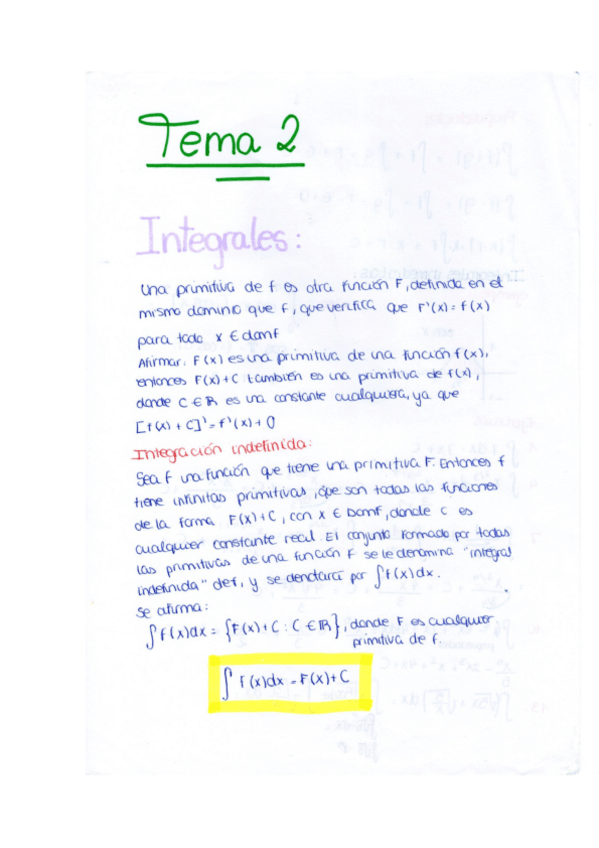 Tema 2
Integrales:
Una primitiva de f es otra función F, definida en el
mismo dominio que f, que verifica que F'(x) = f(x)
para todo x ∈ domf
Afirmar: F(x) es una primitiva de una función f(x),
entonces F(x)+C también es una primitiva de f(x),
donde C ∈ ℝ es una constante cualquiera, ya que
[f(x) + C]' = f'(x) + 0
Integración indefinida:
Sea f una función que tiene una primitiva F. Entonces f
tiene infinitas primitivas, que son todas las funciones
de la forma F(x)+C, con x ∈ Domf, donde c es
cualquier constante real. El conjunto formado por todas
las primitivas de una función f se le denomina "integral
indefinida" def, y se dendará por ∫f(x)dx.
se afirma:
∫f(x)dx = {F(x)+C : C ∈ ℝ}, donde F es cualquier
primitiva de f.
∫ f(x)dx = F(x)+C